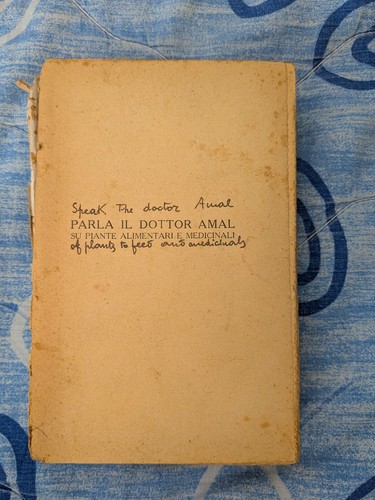 Speak The doctor Amal
PARLA IL DOTTOR AMAL
SU PIANTE ALIMENTARI E MEDICINALI
of plants to feed and medicinals